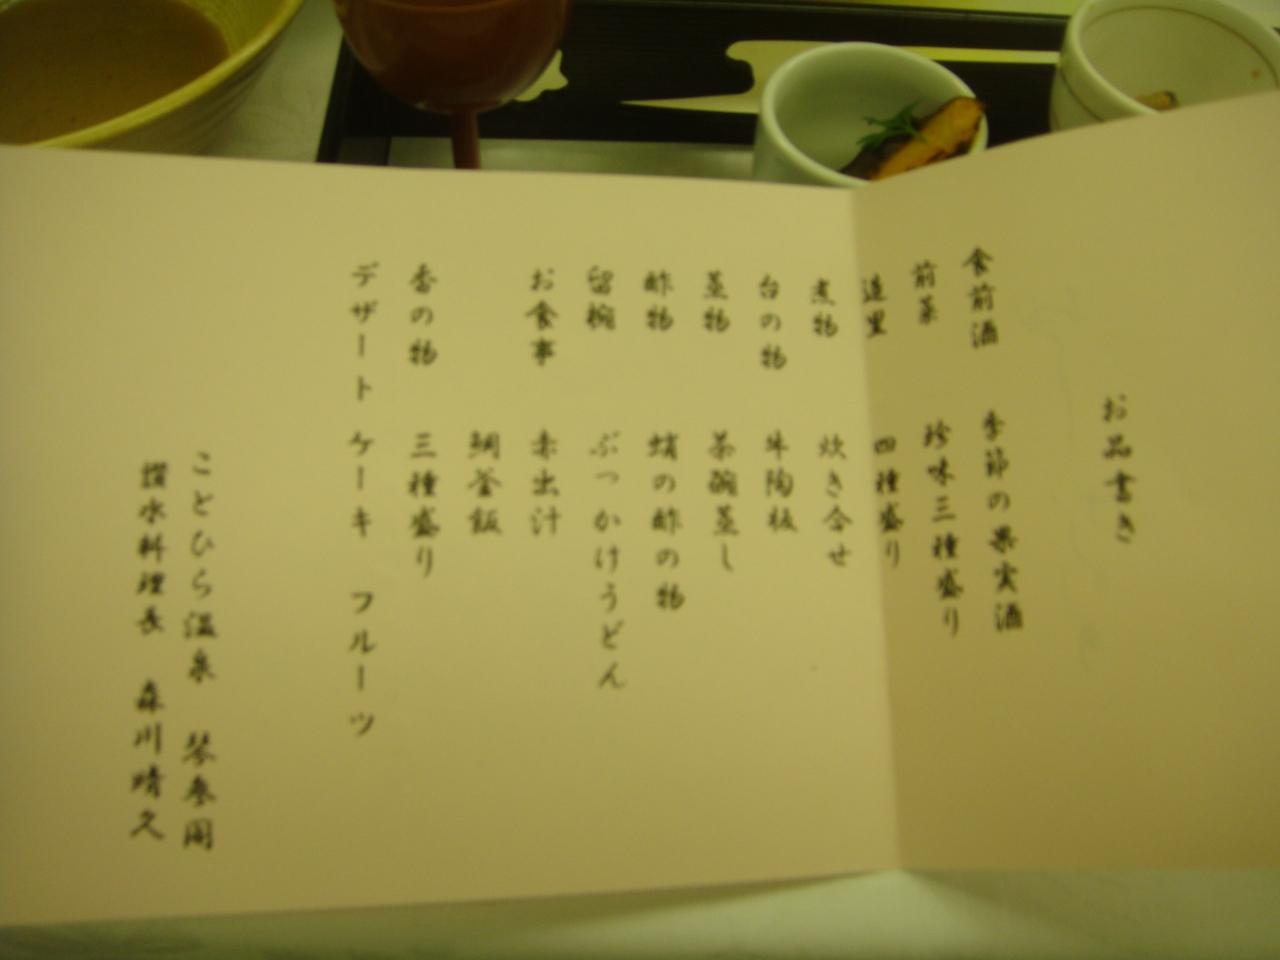 お品書き
食前酒 季節の果実酒
前菜 珍味三種盛り
造里 四種盛り
煮物 炊き合せ
台の物 牛陶板
蒸物 茶碗蒸し
酢物 蛸の酢の物
留椀 ぶっかけうどん
お食事 赤出汁
鯛釜飯
香の物 三種盛り
デザート ケーキ フルーツ
ことひら温泉 琴参閣
料理長 森川晴久